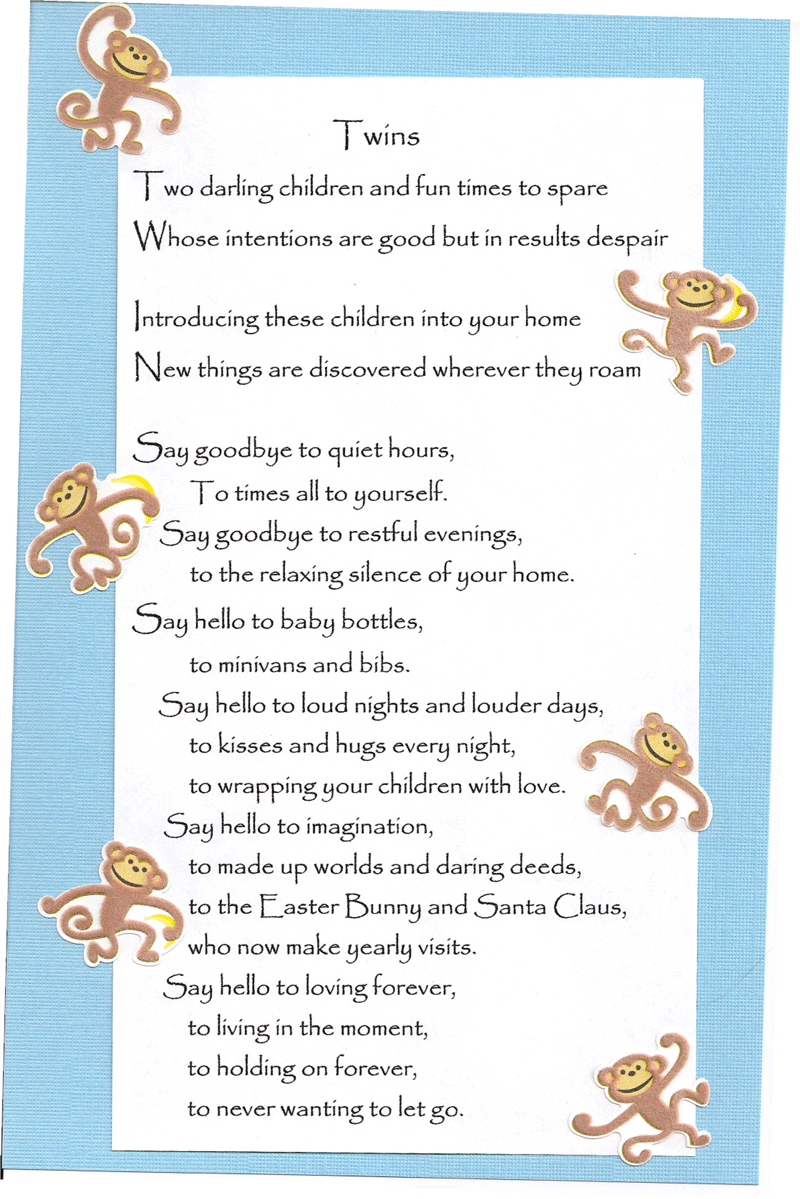 Twins
Two darling children and fun times to spare
Whose intentions are good but in results despair
Introducing these children into your home
New things are discovered wherever they roam
Say goodbye to quiet hours,
To times all to yourself.
Say goodbye to restful evenings,
to the relaxing silence of your home.
Say hello to baby bottles,
to minivans and bibs.
Say hello to loud nights and louder days,
to kisses and hugs every night,
to wrapping your children with love.
Say hello to imagination,
to made up worlds and daring deeds,
to the Easter Bunny and Santa Claus,
who now make yearly visits.
Say hello to loving forever,
to living in the moment,
to holding on forever,
to never wanting to let go.